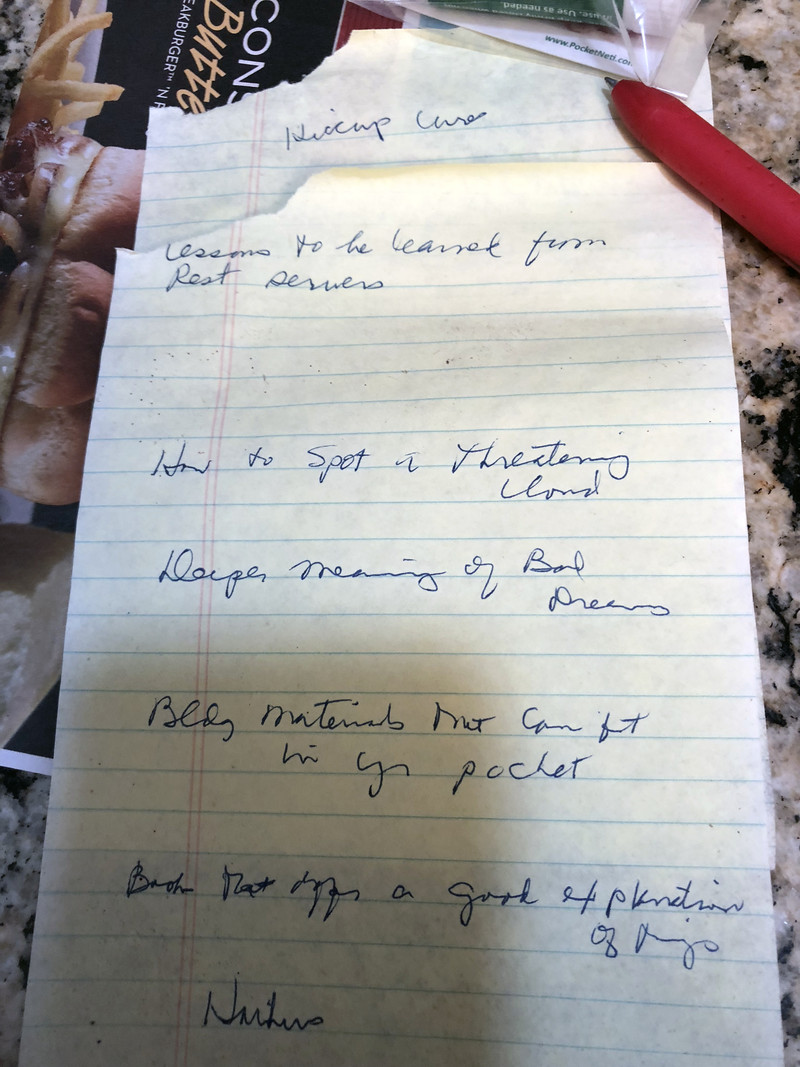 CONS
Butte
EAKBURGER™ 'N F
as use. Use as needed.
www.PocketNeti.co
Hiccup Cures
Lessons to be learned from
Rest servers
How to Spot a threatening
Cloud
Deeper meaning of Bad
Dreams
Bldg materials that can fit
in yr pocket
Book that offers a good explanation
of things